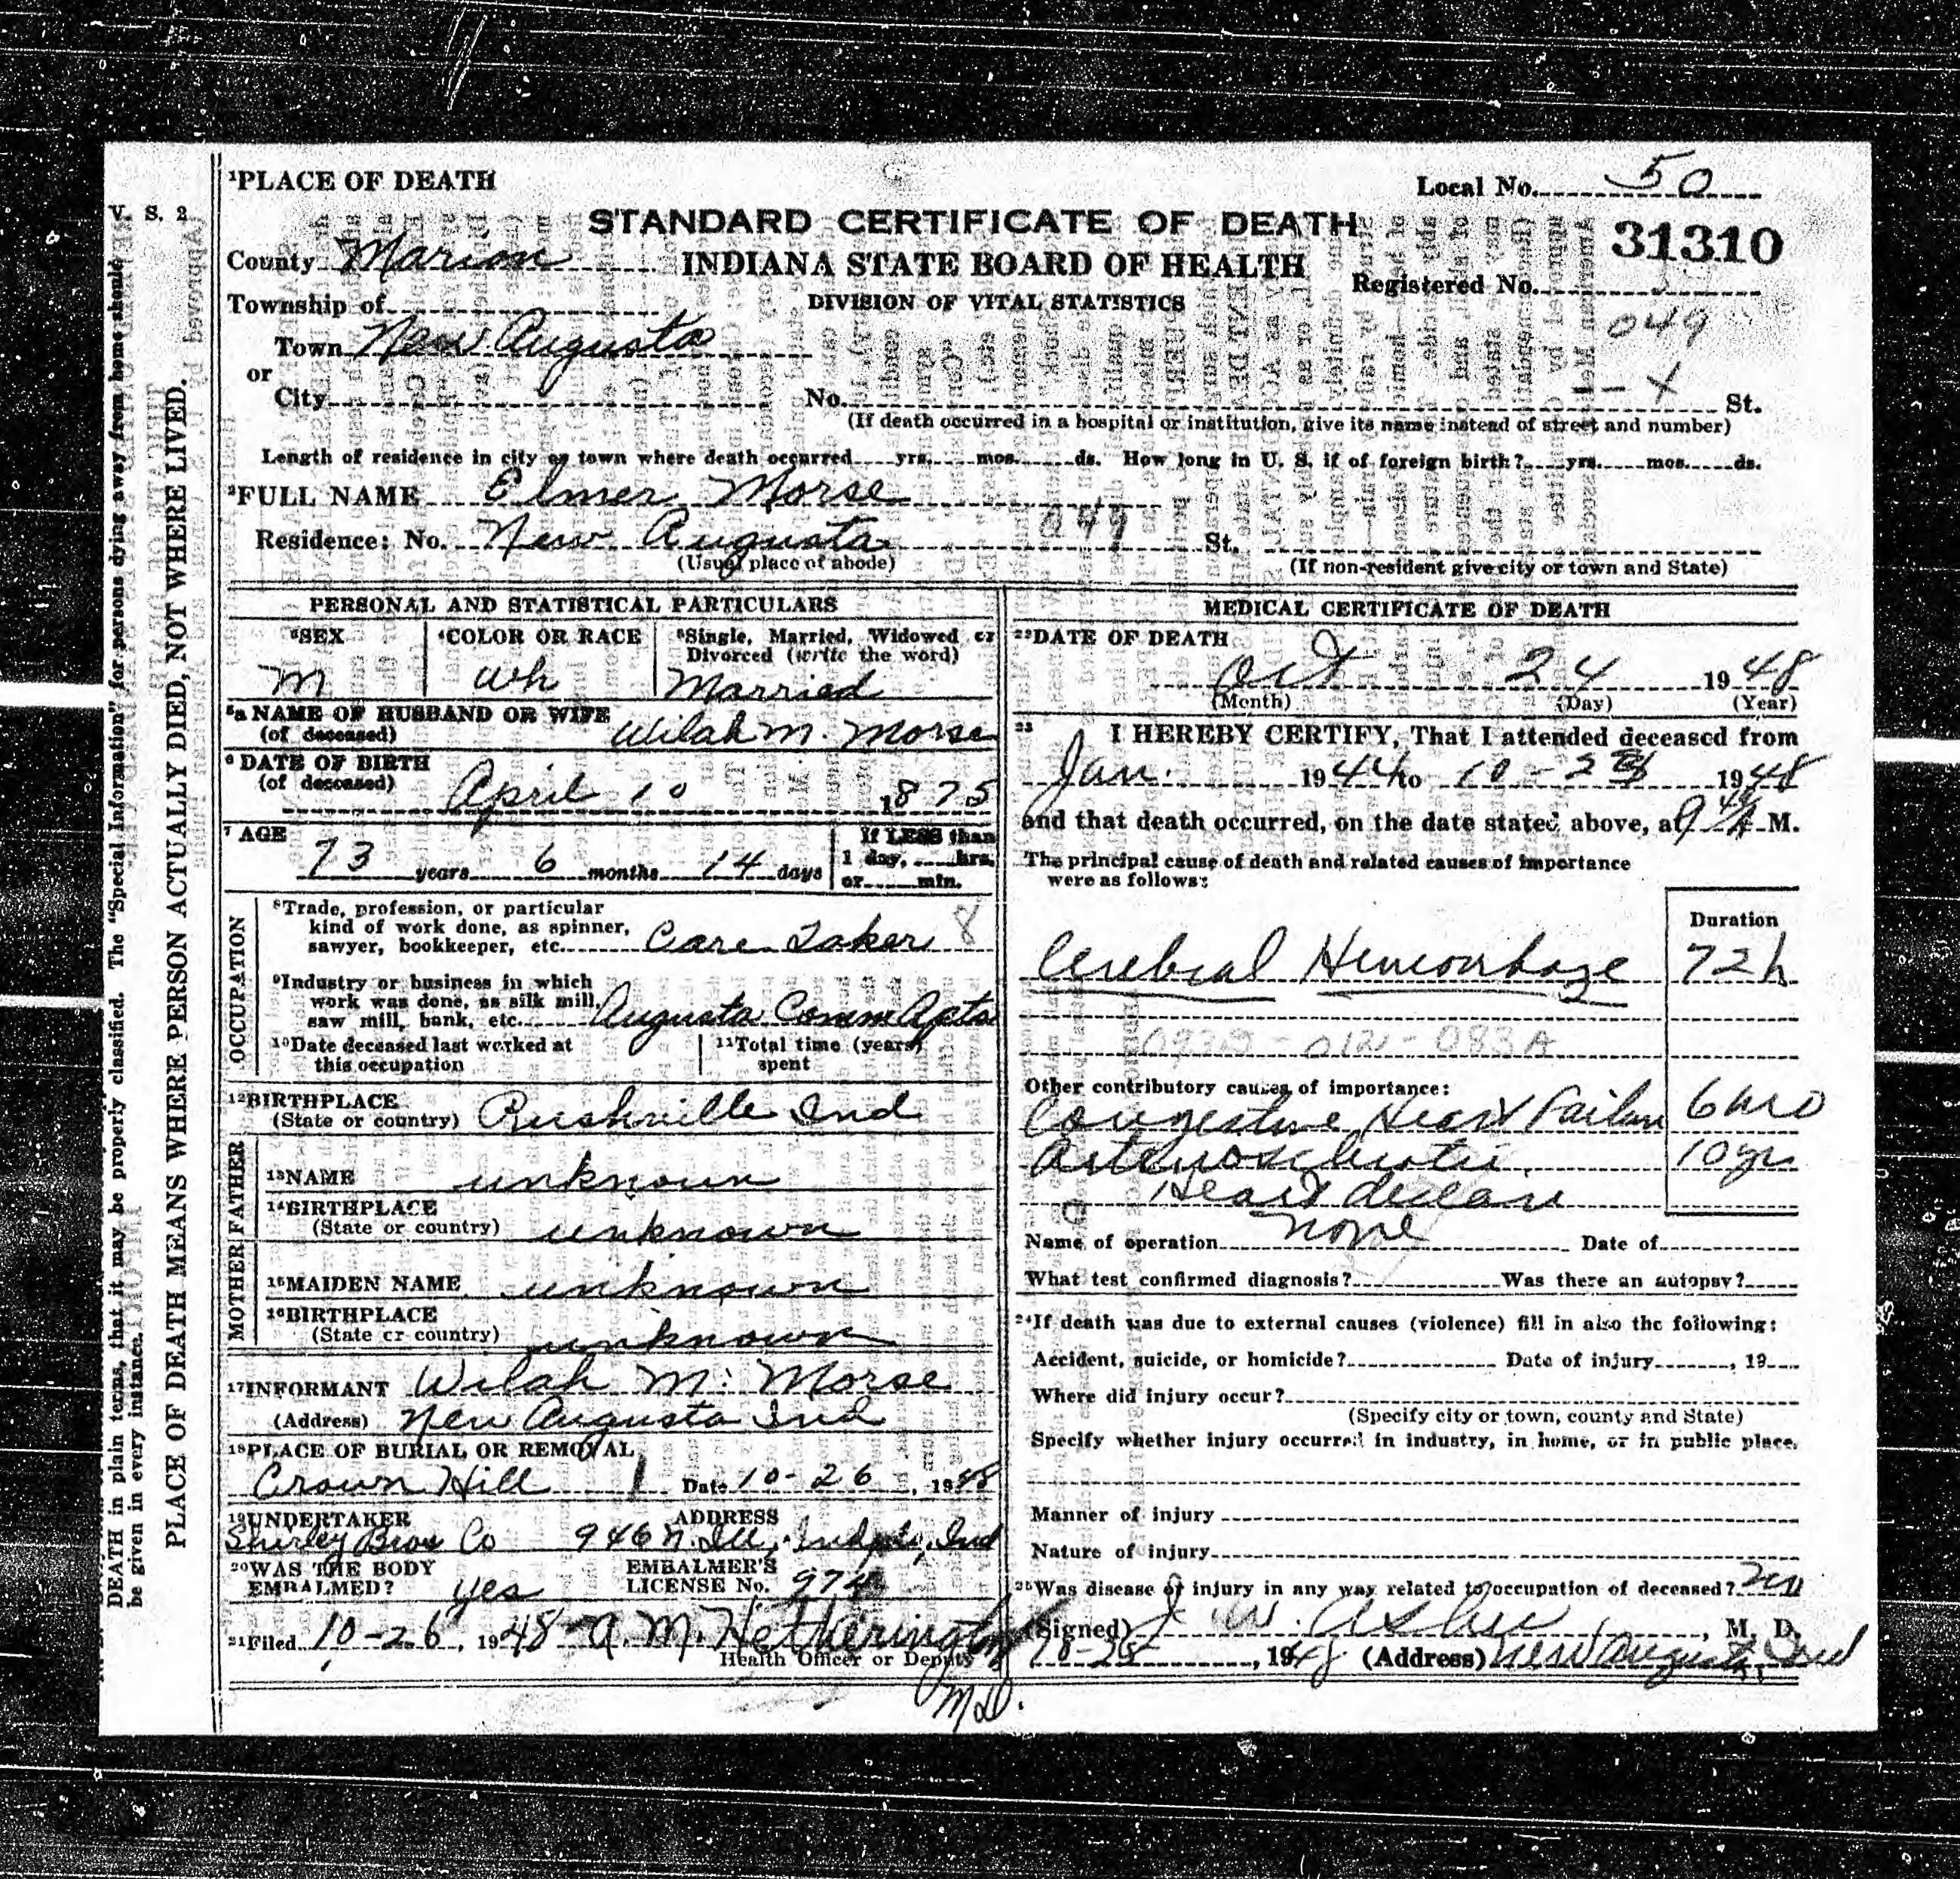 V. S. 2
DEATH in plain terms, that it may be properly classified. The "Special Information" for persons dying away from home should
be given in every instance.
PLACE OF DEATH MEANS WHERE PERSON ACTUALLY DIED, NOT WHERE LIVED.
1PLACE OF DEATH Local No. 50
STANDARD CERTIFICATE OF DEATH
31310
County Marion INDIANA STATE BOARD OF HEALTH
Registered No.
Township of DIVISION OF VITAL STATISTICS
049
Town New Augusta
or
City No. - X St.
(If death occurred in a hospital or institution, give its name instead of street and number)
Length of residence in city or town where death occurred yrs. mos. ds. How long in U. S. if of foreign birth? yrs. mos. ds.
2FULL NAME Elmer Morse
Residence: No. New Augusta 049 St.
(Usual place of abode) (If non-resident give city or town and State)
PERSONAL AND STATISTICAL PARTICULARS
3SEX 4COLOR OR RACE 5Single, Married, Widowed or
Divorced (write the word)
M Wh Married
5a NAME OF HUSBAND OR WIFE
(of deceased) Wilah M. Morse
6 DATE OF BIRTH
(of deceased) April 10 1875
7 AGE If LESS than
73 years 6 months 14 days 1 day, hrs.
or min.
OCCUPATION
8Trade, profession, or particular
kind of work done, as spinner,
sawyer, bookkeeper, etc. Care Taker 8
9Industry or business in which
work was done, as silk mill,
saw mill, bank, etc. Augusta Comm Apts
10Date deceased last worked at 11Total time (years)
this occupation spent
12BIRTHPLACE
(State or country) Rushville Ind
FATHER
13NAME unknown
14BIRTHPLACE
(State or country) unknown
MOTHER
15MAIDEN NAME unknown
16BIRTHPLACE
(State or country) unknown
17INFORMANT Wilah M. Morse
(Address) New Augusta Ind
18PLACE OF BURIAL OR REMOVAL
Crown Hill Date 10-26, 1948
19UNDERTAKER ADDRESS
Shirley Bros Co 946 N. Ill, Indpls, Ind
20WAS THE BODY EMBALMER'S
EMBALMED? yes LICENSE No. 974
21Filed 10-26, 1948 A. M. Hetherington
Health Officer or Deputy
M.D.
MEDICAL CERTIFICATE OF DEATH
22DATE OF DEATH
Oct 24 1948
(Month) (Day) (Year)
23 I HEREBY CERTIFY, That I attended deceased from
Jan. 1944 to 10-2 1948
and that death occurred, on the date stated above, at 9 A M.
The principal cause of death and related causes of importance
were as follows:
Duration
Cerebral Hemorrhage 72h
Other contributory causes of importance:
Congestive Heart Failure 6 mo
Arteriosclerotic 10 yr
Heart disease
Name of operation none Date of
What test confirmed diagnosis? Was there an autopsy?
24If death was due to external causes (violence) fill in also the following:
Accident, suicide, or homicide? Date of injury , 19
Where did injury occur?
(Specify city or town, county and State)
Specify whether injury occurred in industry, in home, or in public place.
Manner of injury
Nature of injury
25Was disease or injury in any way related to occupation of deceased? no
(Signed) J. W. , M. D.
1948 (Address) New Augusta Ind